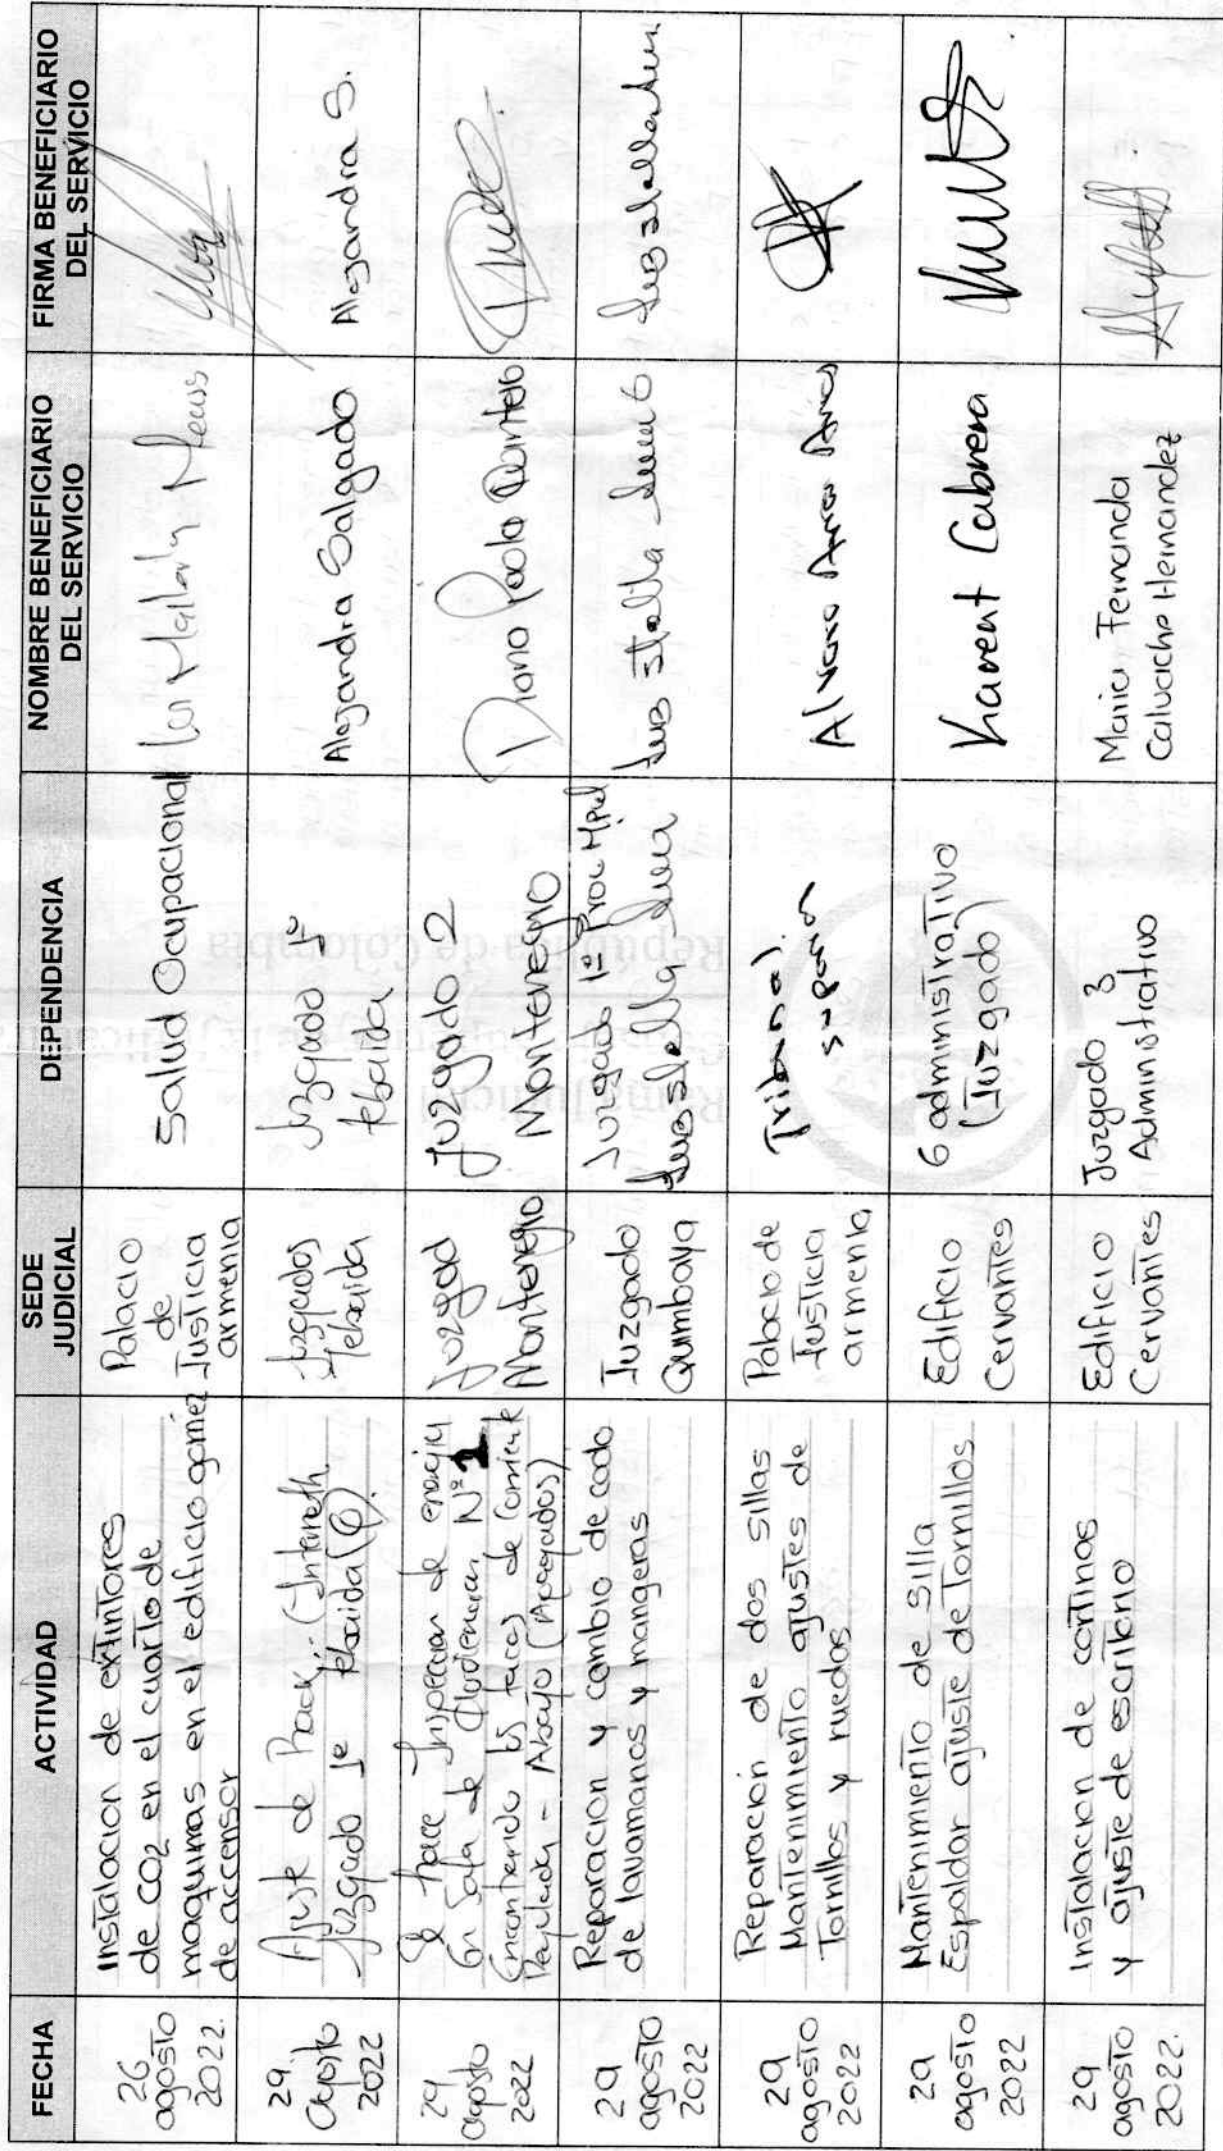 FECHA
ACTIVIDAD
SEDE
JUDICIAL
DEPENDENCIA
NOMBRE BENEFICIARIO
DEL SERVICIO
FIRMA BENEFICIARIO
DEL SERVICIO
26
agosto
2022.
Instalacion de extintores
de CO2 en el cuarto de
maquinas en el edificio gomez
de accensor
Palacio
de
Justicia
armenia
Salud Ocupacional
29.
Agosto
2022
Ajuste de Rack. (Interneth
Juzgado 1e tebaida
Juzgados
Tebaida
Juzgado 1º
tebaida
Alejandra Salgado
Alejandra S.
29
Agosto
2022
Se hace Inspeccion de energia
En Sala de Audiencias Nº
Encontrando los tacos de Corriente
Regulada - Abajo (Apagados)
Juzgad
Montenegro
Juzgado 2
Montenegro
Diana Paola Quintero
29
agosto
2022
Reparacion y cambio de codo
de lavamanos y mangeras
Juzgado
Quimbaya
Juzgado 1º Prom Mpal
29
agosto
2022
Reparación de dos sillas
Mantenimiento ajustes de
Tornillos y ruedas
Palacio de
Justicia
armenia
Tribunal
superior
Alvaro
29
agosto
2022
Mantenimiento de silla
Espaldar ajuste de Tornillos
Edificio
Cervantes
6 administrativo
(Juzgado)
Karent Cabrera
29
agosto
2022.
Instalacion de cortinas
y ajuste de escritorio
Edificio
Cervantes
Juzgado 3
Administrativo
Maria Fernanda
Calucho Hernandez